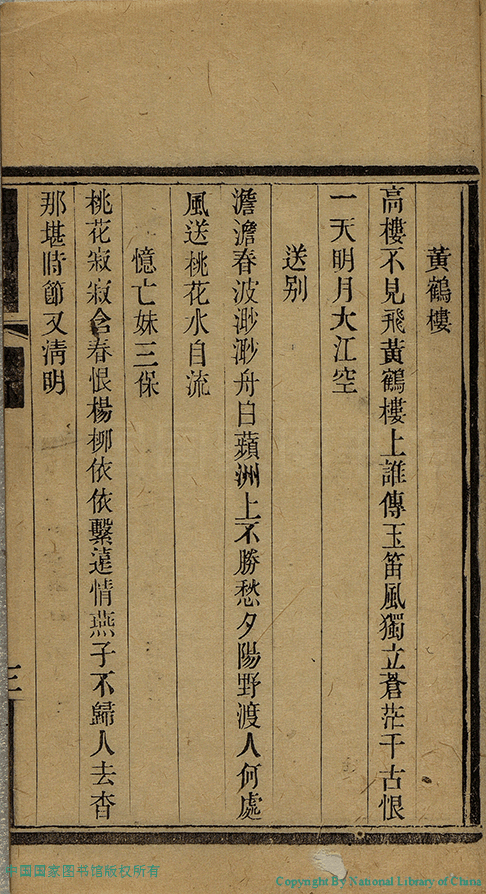 黃鶴樓
高樓不見飛黃鶴樓上誰傳玉笛風獨立蒼茫千古恨
一天明月大江空
送別
澹澹春波渺渺舟白蘋洲上不勝愁夕陽野渡人何處
風送桃花水自流
憶亡妹三保
桃花寂寂含春恨楊柳依依繫遠情燕子不歸人去杳
那堪時節又淸明
三
中国国家图书馆版权所有
Copyright By National Library of China